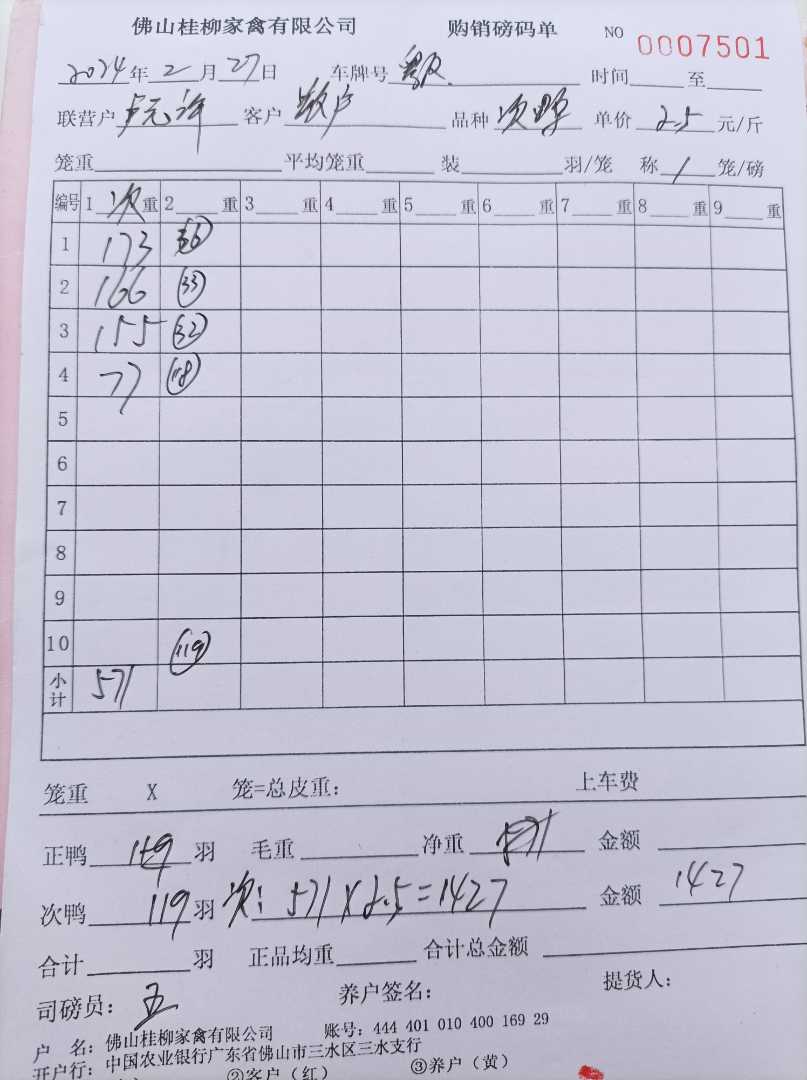 佛山桂柳家禽有限公司 购销磅码单 NO 0007501
2024年2月27日 车牌号 时间 至
联营户 卢元许 客户 散户 品种 次 单价 2.5 元/斤
笼重 平均笼重 装 羽/笼 称 1 笼/磅
编号 1 次 重 2 重 3 重 4 重 5 重 6 重 7 重 8 重 9 重
1 173 36
2 166 33
3 155 32
4 77 18
5
6
7
8
9
10 119
小计 571
笼重 X 笼=总皮重: 上车费
正鸭 119 羽 毛重 净重 571 金额
次鸭 119 羽 次: 571 X 2.5 = 1427 金额 1427
合计 羽 正品均重 合计总金额
司磅员: 养户签名: 提货人:
户 名: 佛山桂柳家禽有限公司 账号: 444 401 010 400 169 29
开户行: 中国农业银行广东省佛山市三水区三水支行
②客户(红) ③养户(黄)